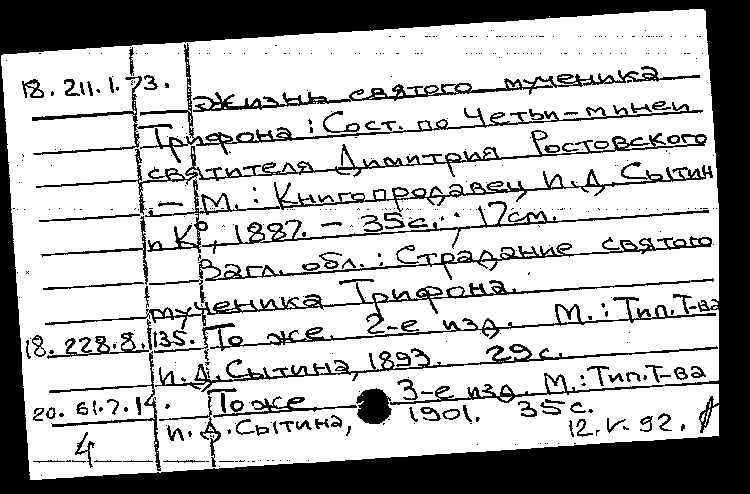 18. 211. 1. 73. Жизнь святого мученика
Трифона : Сост. по Четьи-минеи
святителя Димитрия Ростовского
. – М. : Книгопродавец И. Д. Сытин
и К°, 1887. – 35с. ; 17см.
Загл. обл. : Страдание святого
мученика Трифона.
18. 228. 8. 135. То же. 2-е изд. М. : Тип. Т-ва
И. Д. Сытина, 1893. 29с.
20. 61. 7. 14. То же. 3-е изд. М. : Тип. Т-ва
И. Д. Сытина, 1901. 35с.
4 12. V. 92.